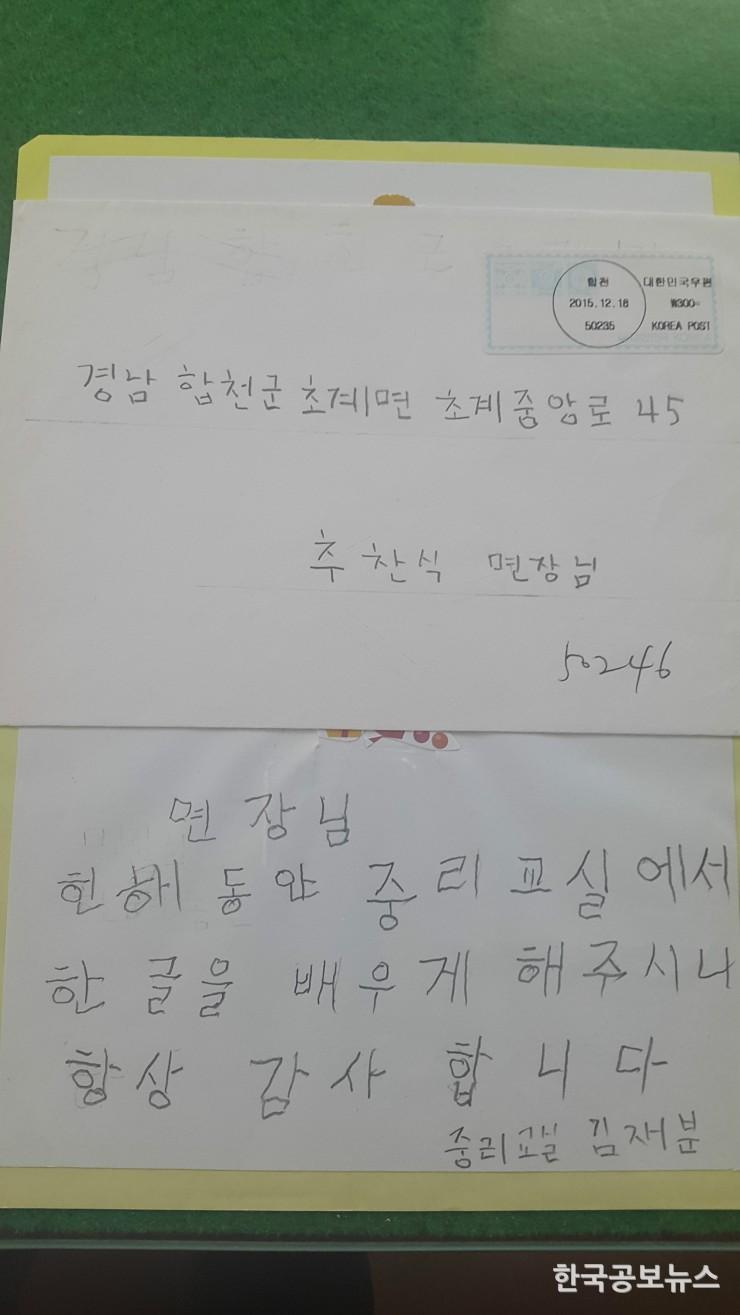 합천 대한민국우편
2015.12.18 ₩300
50235 KOREA POST
경남 합천군 초계면 초계중앙로 45
추찬식 면장님
50246
면장님
헌해동안 중리교실에서
한글을 배우게 해주시니
항상 감사합니다
중리교실 김재분
한국공보뉴스